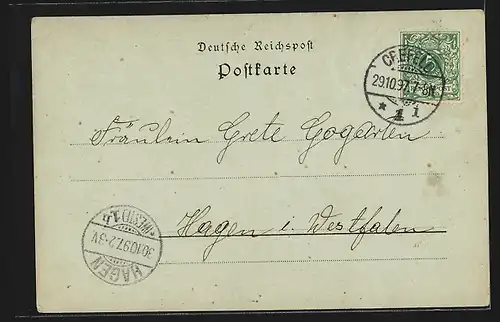 Deutsche Reichspost
Postkarte
CREFELD
29.10.97. 7-8N
* 1 i
Fräulein Grete Gogarten
Hagen i. Westfalen
(WESTF) 1.h
30.10.97. 2-3V
HAGEN